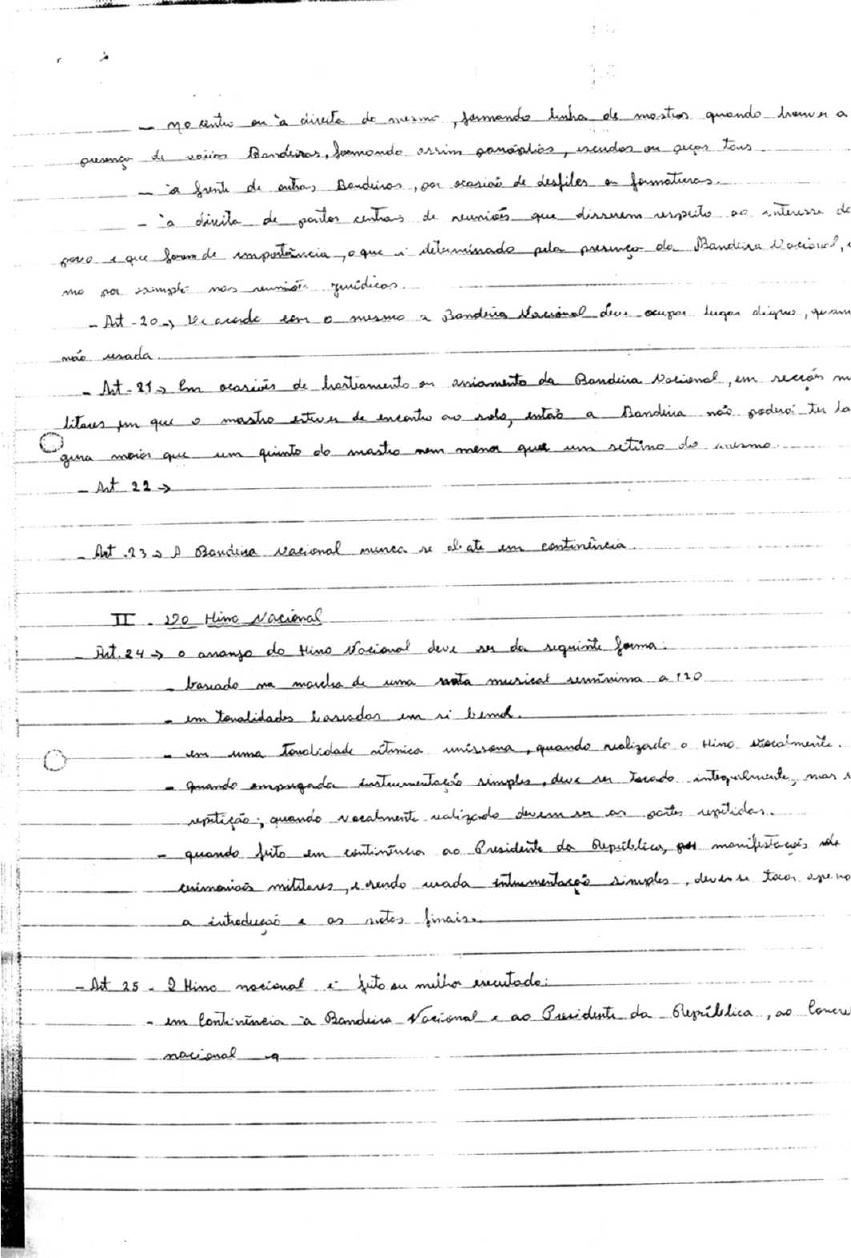 - no centro ou à direita do mesmo, formando linha de mastros quando houver a
presença de vários Bandeiras, formando assim panóplias, escudos ou peças tais.
- à frente de outras Bandeiras, por ocasião de desfiles ou formaturas.
- à direita de pontos centrais de reuniões que disserem respeito ao interesse do
povo e que forem de importância, o que é determinado pela presença da Bandeira Nacional,
mo por exemplo nas reuniões jurídicas.
- Art-20 → De acordo com o mesmo a Bandeira Nacional deve ocupar lugar digno, quan
não usada.
- Art-21 → Em ocasiões de hasteamento ou arriamento da Bandeira Nacional, em secções mi
litares, em que o mastro estiver de encontro ao solo, então a Bandeira não poderá ter la
gura maior que um quinto do mastro nem menor que um sétimo do mesmo.
- Art 22 →
- Art.23 → A Bandeira Nacional nunca se abate em continência.
II - Do Hino Nacional
- Art.24 → O arranjo do Hino Nacional deve ser da seguinte forma:
- baseado na marcha de uma nota musical semínima a 120
- em tonalidades baseadas em si bemol.
- em uma tonalidade rítmica uníssona, quando realizado o Hino vocalmente.
- quando empregada instrumentação simples, deve ser tocado integralmente, mas s
repetição; quando vocalmente realizado devem ser as partes repetidas.
- quando feito em continência ao Presidente da República, por manifestações de
cerimoniais militares, e sendo usada intrumentação simples, deve-se tocar apena
a introdução e as notas finais.
- Art 25 - O Hino nacional é feito ou melhor executado:
- em Continência à Bandeira Nacional e ao Presidente da República, ao Congre
nacional